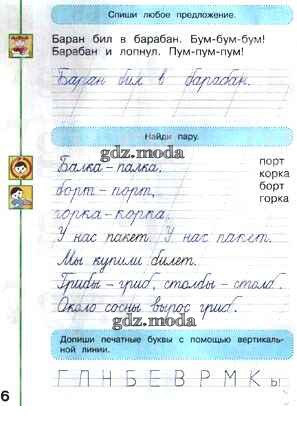 Спиши любое предложение.
Баран бил в барабан. Бум-бум-бум!
Барабан и лопнул. Пум-пум-пум!
Баран бил в барабан.
Найди пару.
gdz.moda
Балка-палка, порт
борт-порт, корка
горка-корка. борт
горка
У нас пакет. У нас пакет.
Мы купили билет.
Грибы-гриб, столбы-столб.
Около сосны вырос гриб.
gdz.moda
Допиши печатные буквы с помощью вертикаль-
ной линии.
Г П Н Б Е В Р М К Ы
6